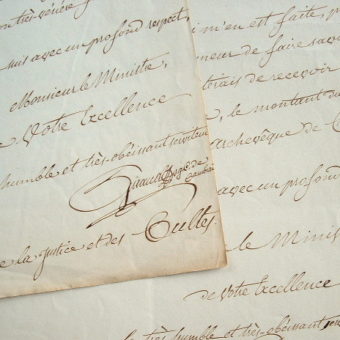 suis avec un profond respect,
Monsieur le Ministre,
de Votre Excellence
humble et très-obéissant serviteur
de la justice et des Cultes.
m'en est faite,
de faire
de recevoir
, le montant du
archevêque de
avec un profond
le Minis
de Votre Excellence
très humble et très-obéissant